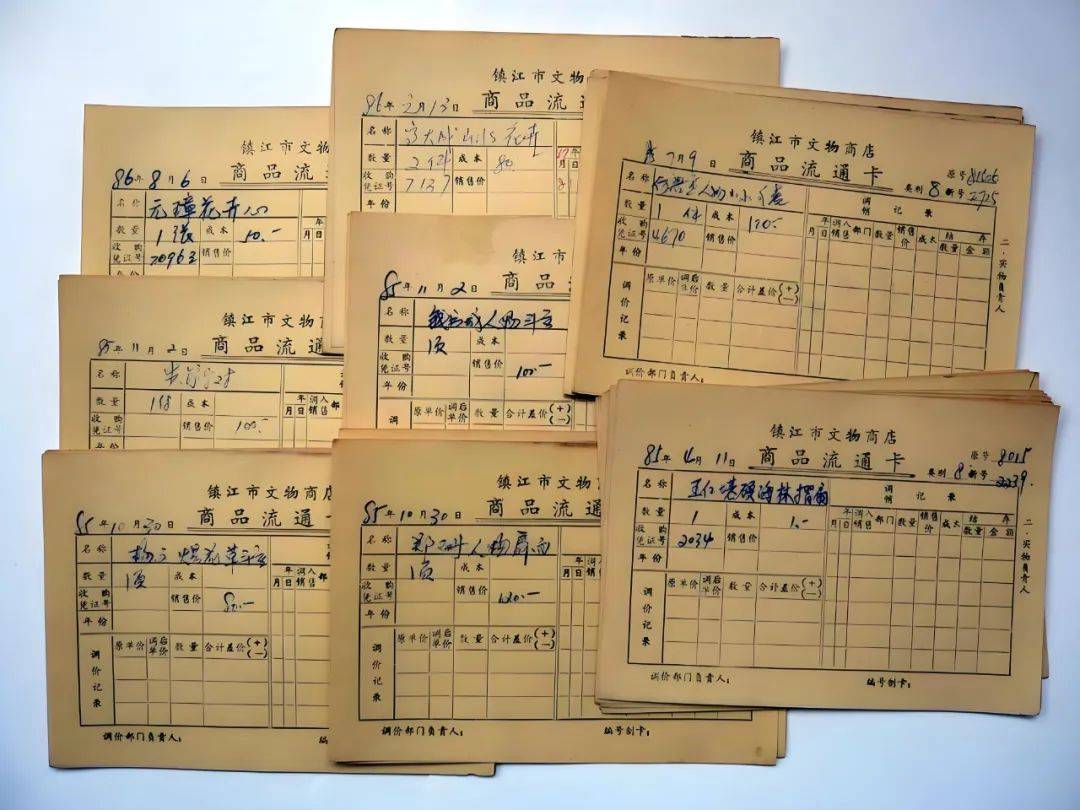 镇江市文物商店
86年8月6日 商品流通
名称
数量 1张 成本 10.-
收购凭证号 20963 销售价
年份
年
月日
镇江市文物
86年2月13日 商品流通
名称
数量 成本 80.
收购凭证号 7137 销售价
年份
镇江市文物商店
7月9日 商品流通卡
原号
类别 8 新号
名称
调销记录
数量 1件 成本 120.-
收购凭证号 4670 销售价
年份
年 调入
月日 销售 部门 数量 销售价 成本 结存
数量 金额
调价记录
原单价 调后单价 数量 合计差价(+)(—)
调价部门负责人:
二.实物负责人
镇江市文物商店
85年11月2日 商品流通
名称
数量 1件 成本
收购凭证号 销售价 100.-
年份
年 调入
月日 销售 部
镇江市
85年11月2日 商品
名称
数量 1页 成本
收购凭证号 销售价 100.-
年份
调
原单价 调后单价 数量 合计差价(+)(—)
镇江市文物商店
85年10月30日 商品流通卡
名称
数量 1页 成本
收购凭证号 销售价 80.-
年份
年 调入
月日 销售
调价记录
原单价 调后单价 数量 合计差价(+)(—)
调价部门负责人:
编
镇江市文物
85年10月30日 商品流通
名称
数量 1页 成本
收购凭证号 销售价 120.-
年份
年
月日
调价记录
原单价 调后单价 数量 合计差价(+)(—)
调价部门负责人:
编号制卡:
镇江市文物商店
85年4月11日 商品流通卡
原号 8015
类别 8 新号
名称
调销记录
数量 1 成本 1.-
收购凭证号 2034 销售价
年份
年 调入
月日 销售 部门 数量 销售价 成本 结存
数量 金额
调价记录
原单价 调后单价 数量 合计差价(+)(—)
调价部门负责人:
编号制卡:
二.实物负责人